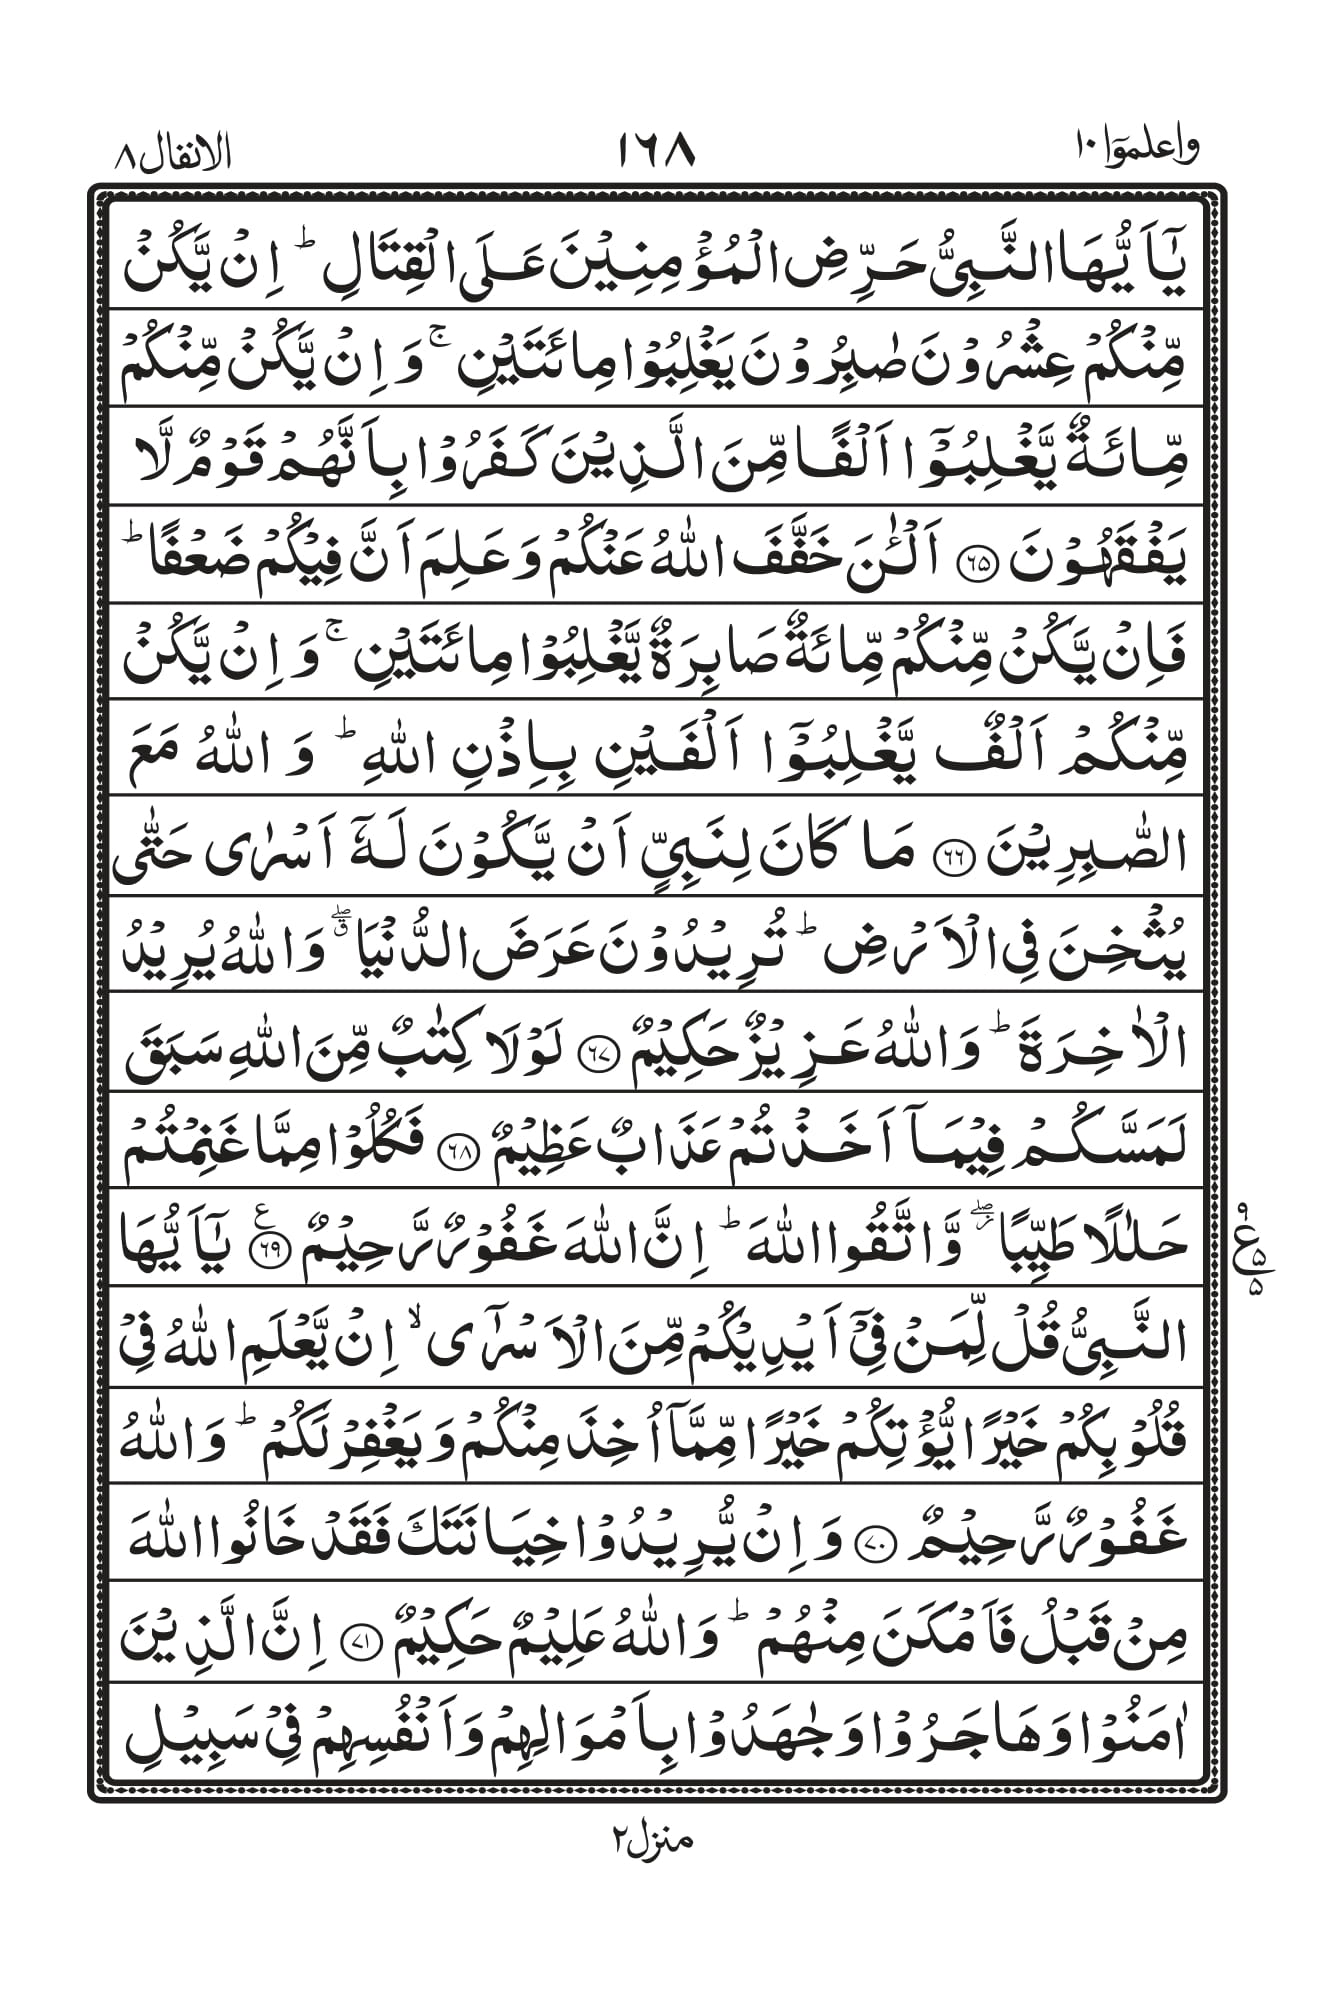 واعلموۤا ١٠
١٦٨
الانفال ٨
يٰۤاَيُّهَا النَّبِىُّ حَرِّضِ الۡمُؤۡمِنِيۡنَ عَلَى الۡقِتَالِ‌ؕ اِنۡ يَّكُنۡ
مِّنۡكُمۡ عِشۡرُوۡنَ صٰبِرُوۡنَ يَغۡلِبُوۡا مِائَتَيۡنِ‌ۚ وَاِنۡ يَّكُنۡ مِّنۡكُمۡ
مِّائَةٌ يَّغۡلِبُوۡۤا اَ لۡفًا مِّنَ الَّذِيۡنَ كَفَرُوۡا بِاَنَّهُمۡ قَوۡمٌ لَّا
يَفۡقَهُوۡنَ ﴿۶۵﴾ اَلۡـٰٔنَ خَفَّفَ اللّٰهُ عَنۡكُمۡ وَعَلِمَ اَنَّ فِيۡكُمۡ ضَعۡفًا‌ؕ
فَاِنۡ يَّكُنۡ مِّنۡكُمۡ مِّائَةٌ صَابِرَةٌ يَّغۡلِبُوۡا مِائَتَيۡنِ‌ۚ وَاِنۡ يَّكُنۡ
مِّنۡكُمۡ اَلۡفٌ يَّغۡلِبُوۡۤا اَلۡفَيۡنِ بِاِذۡنِ اللّٰهِؕ وَ اللّٰهُ مَعَ
الصّٰبِرِيۡنَ ﴿۶۶﴾ مَا كَانَ لِنَبِىٍّ اَنۡ يَّكُوۡنَ لَهٗۤ اَسۡرٰى حَتّٰى
يُثۡخِنَ فِى الۡاَرۡضِ‌ؕ تُرِيۡدُوۡنَ عَرَضَ الدُّنۡيَا ۖۗ وَاللّٰهُ يُرِيۡدُ
الۡاٰخِرَةَ‌ؕ وَاللّٰهُ عَزِيۡزٌ حَكِيۡمٌ ﴿۶۷﴾ لَوۡلَا كِتٰبٌ مِّنَ اللّٰهِ سَبَقَ
لَمَسَّكُمۡ فِيۡمَاۤ اَخَذۡتُمۡ عَذَابٌ عَظِيۡمٌ ﴿۶۸﴾ فَكُلُوۡا مِمَّا غَنِمۡتُمۡ
حَلٰلاً طَيِّبًا ۖز وَّاتَّقُوا اللّٰهَ‌ؕ اِنَّ اللّٰهَ غَفُوۡرٌ رَّحِيۡمٌ ﴿۶۹﴾ ع يٰۤاَيُّهَا
٩ ع ۵ ۵
النَّبِىُّ قُلۡ لِّمَنۡ فِىۡۤ اَيۡدِيۡكُمۡ مِّنَ الۡاَسۡرٰٓىۙ اِنۡ يَّعۡلَمِ اللّٰهُ فِىۡ
قُلُوۡبِكُمۡ خَيۡرًا يُّؤۡتِكُمۡ خَيۡرًا مِّمَّاۤ اُخِذَ مِنۡكُمۡ وَيَغۡفِرۡ لَـكُمۡ‌ؕ وَاللّٰهُ
غَفُوۡرٌ رَّحِيۡمٌ ﴿۷۰﴾ وَاِنۡ يُّرِيۡدُوۡا خِيَانَـتَكَ فَقَدۡ خَانُوا اللّٰهَ
مِنۡ قَبۡلُ فَاَمۡكَنَ مِنۡهُمۡ‌ؕ وَاللّٰهُ عَلِيۡمٌ حَكِيۡمٌ ﴿۷۱﴾ اِنَّ الَّذِيۡنَ
اٰمَنُوۡا وَهَاجَرُوۡا وَجٰهَدُوۡا بِاَمۡوَالِهِمۡ وَاَنۡفُسِهِمۡ فِىۡ سَبِيۡلِ
منزل ٢